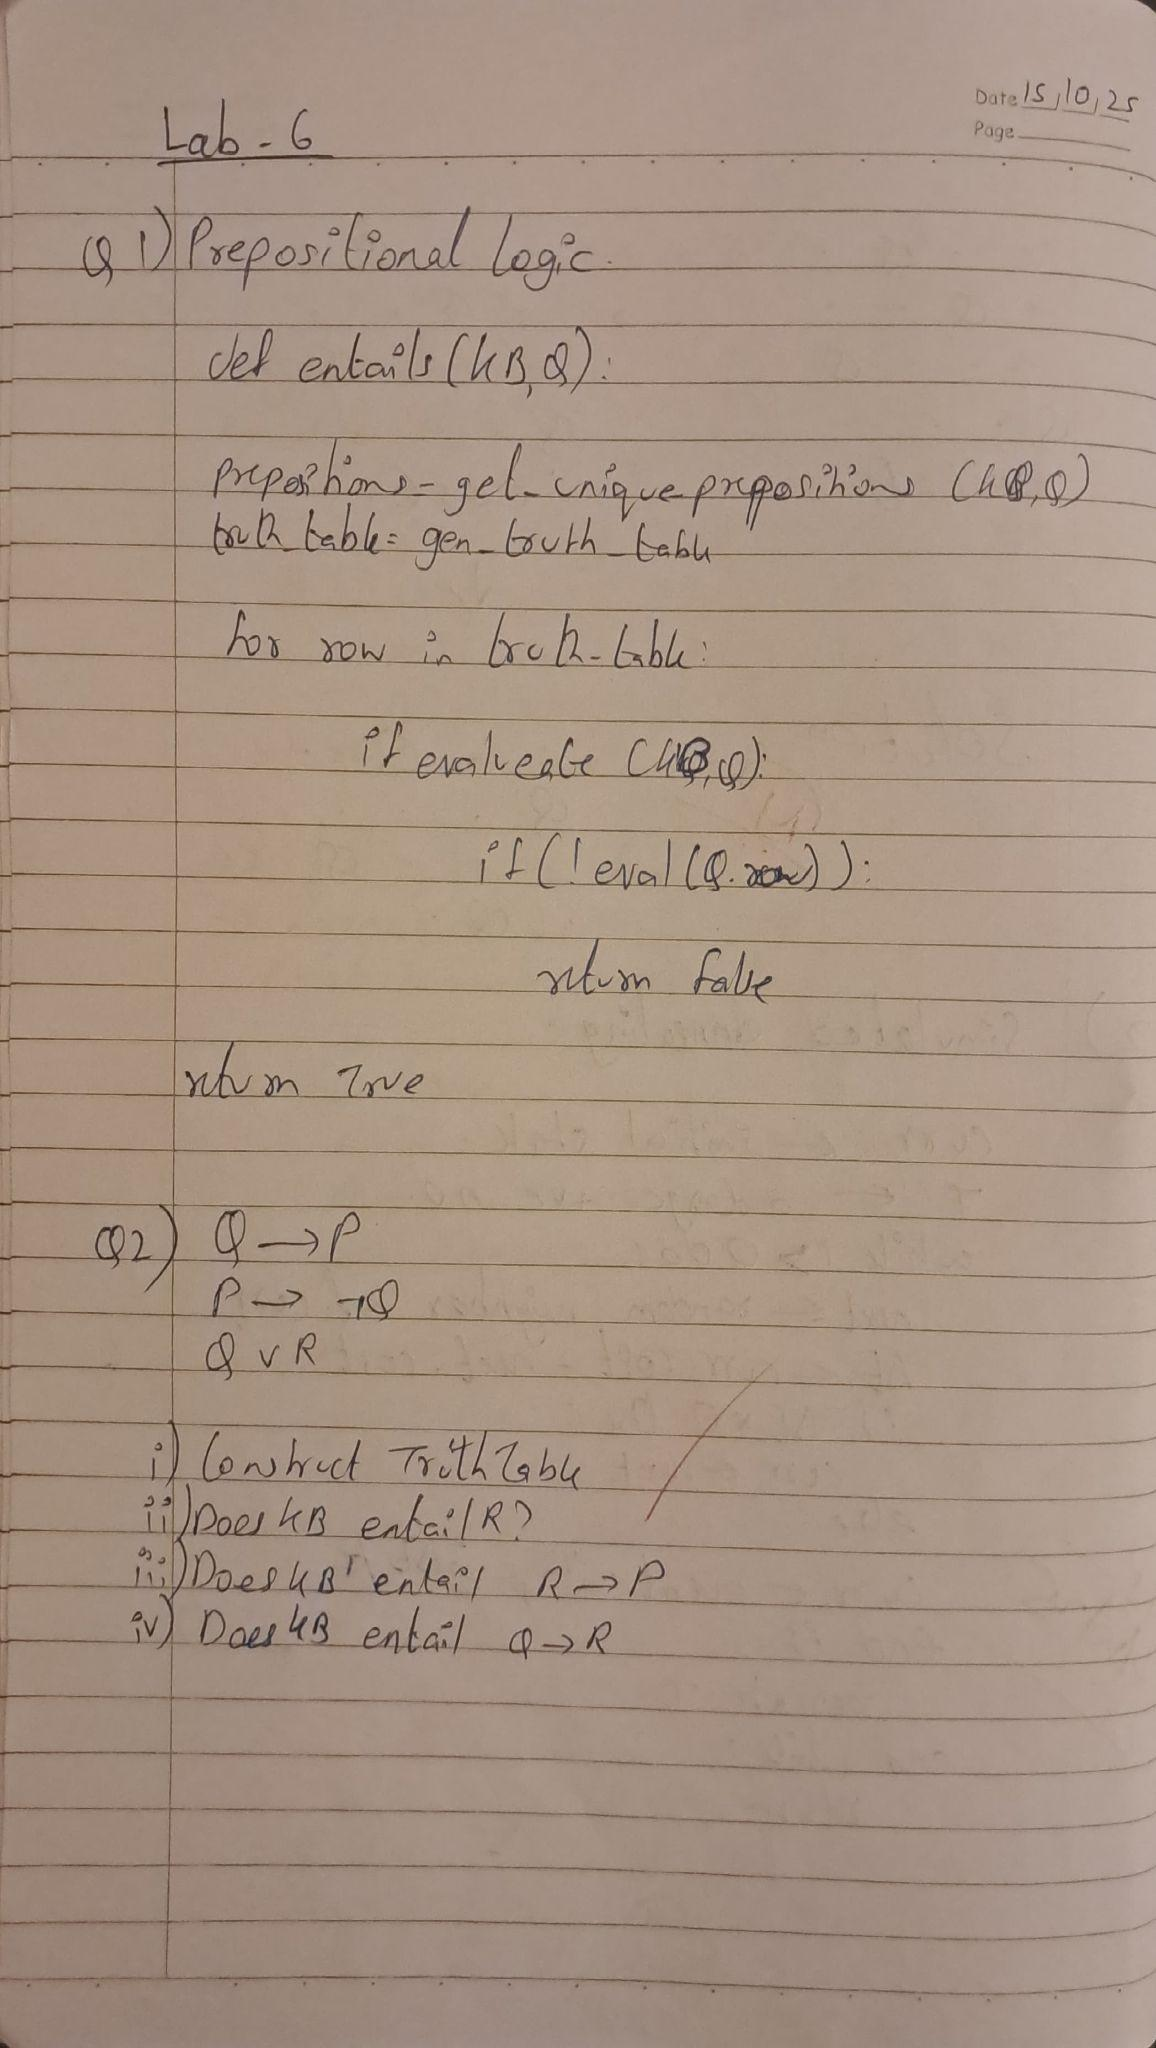 Date 15/10/25
Page
Lab - 6
Q 1) Prepositional Logic.
def entails (KB, Q):
prepositions = get_unique prepositions (KB, Q)
truth_table = gen_truth_table
for row in truth_table:
if evaluate (KB, Q):
if (! eval (Q. row)):
return false
return True
Q2) Q → P
P → ¬Q
Q ∨ R
i) Construct Truth Table
ii) Does KB entail R?
iii) Does KB entail R → P
iv) Does KB entail Q → R